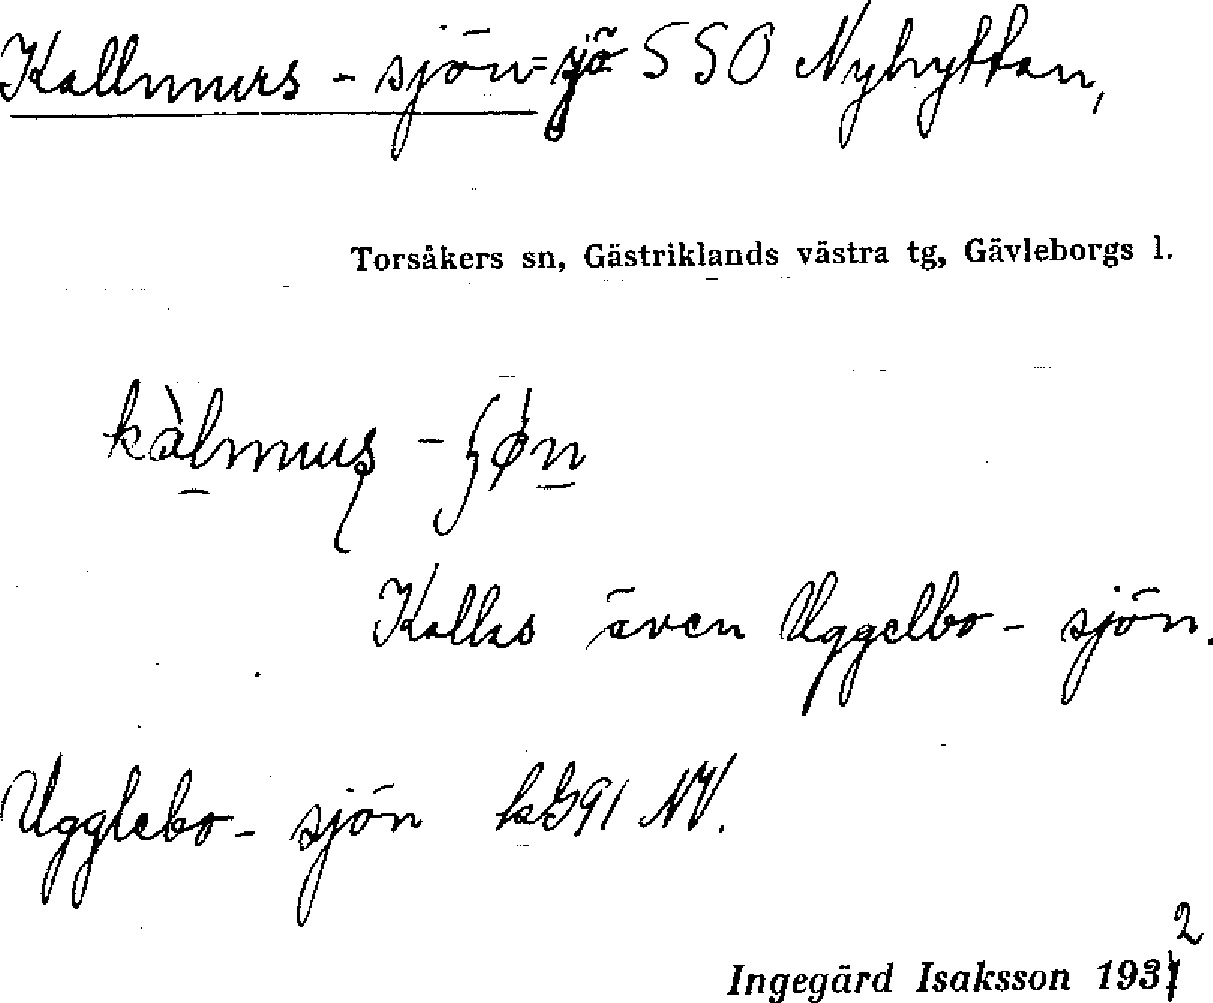 Kallmurs - sjön = sjö SSO Nyhyttan,
Torsåkers sn, Gästriklands västra tg, Gävleborgs l.
kàlmuʂ - ʃøn
Kallas även Uggelbo - sjön.
Ugglebo - sjön kB91 NV.
Ingegärd Isaksson 1932